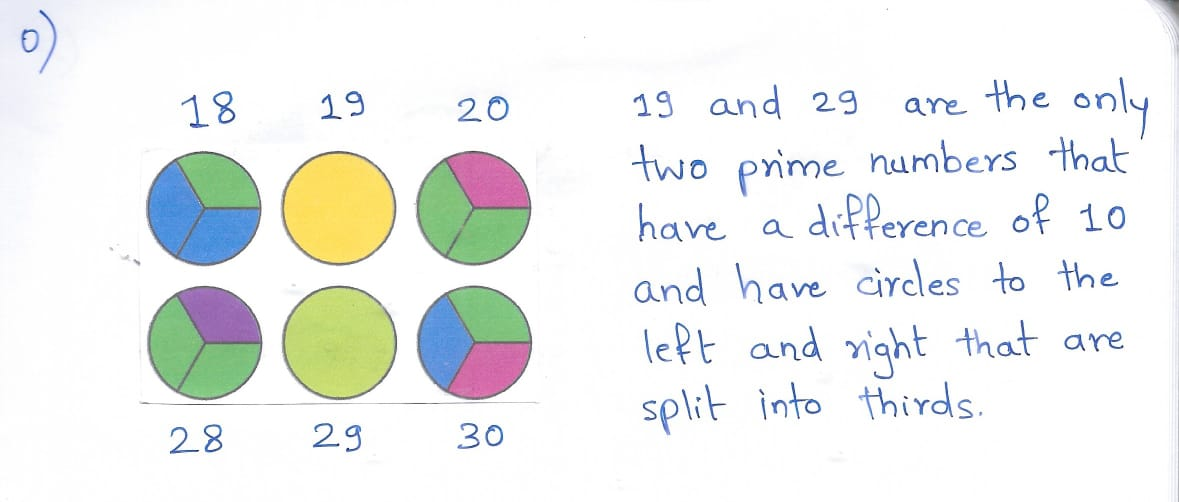 o)
18 19 20
28 29 30
19 and 29 are the only
two prime numbers that
have a difference of 10
and have circles to the
left and right that are
split into thirds.